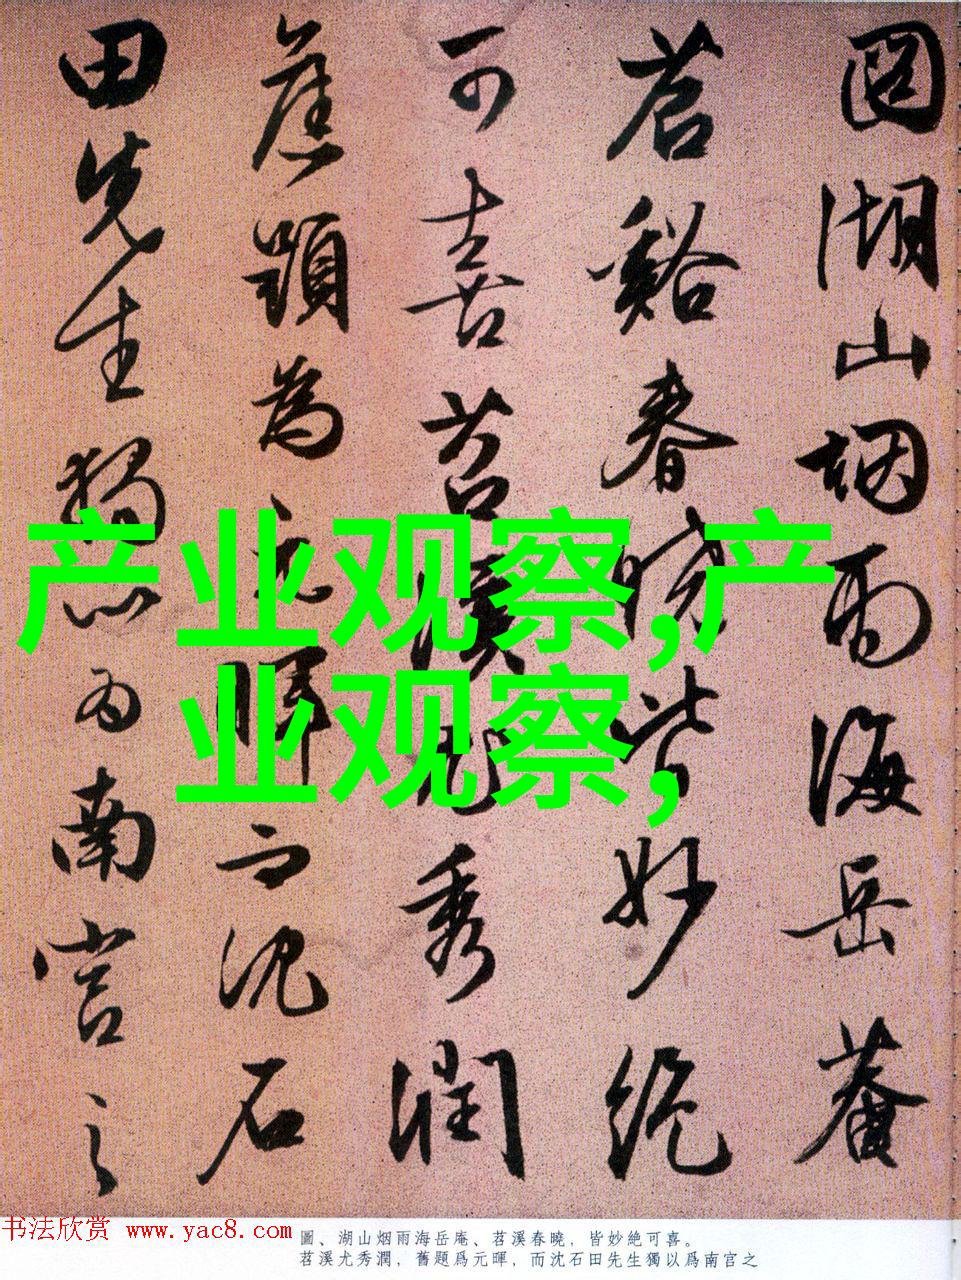 圖湖山烟雨海岳菴
苕谿春曉皆妙絶
可喜苕溪尤秀潤
舊題為元暉而沈石
田先生獨以為南宮之
产业观察,产
业观察,
書法欣赏 www.yac8.com
圖、湖山烟雨海岳庵、苕溪春曉，皆妙絶可喜。
苕溪尤秀潤，舊題爲元暉，而沈石田先生獨以爲南宫之